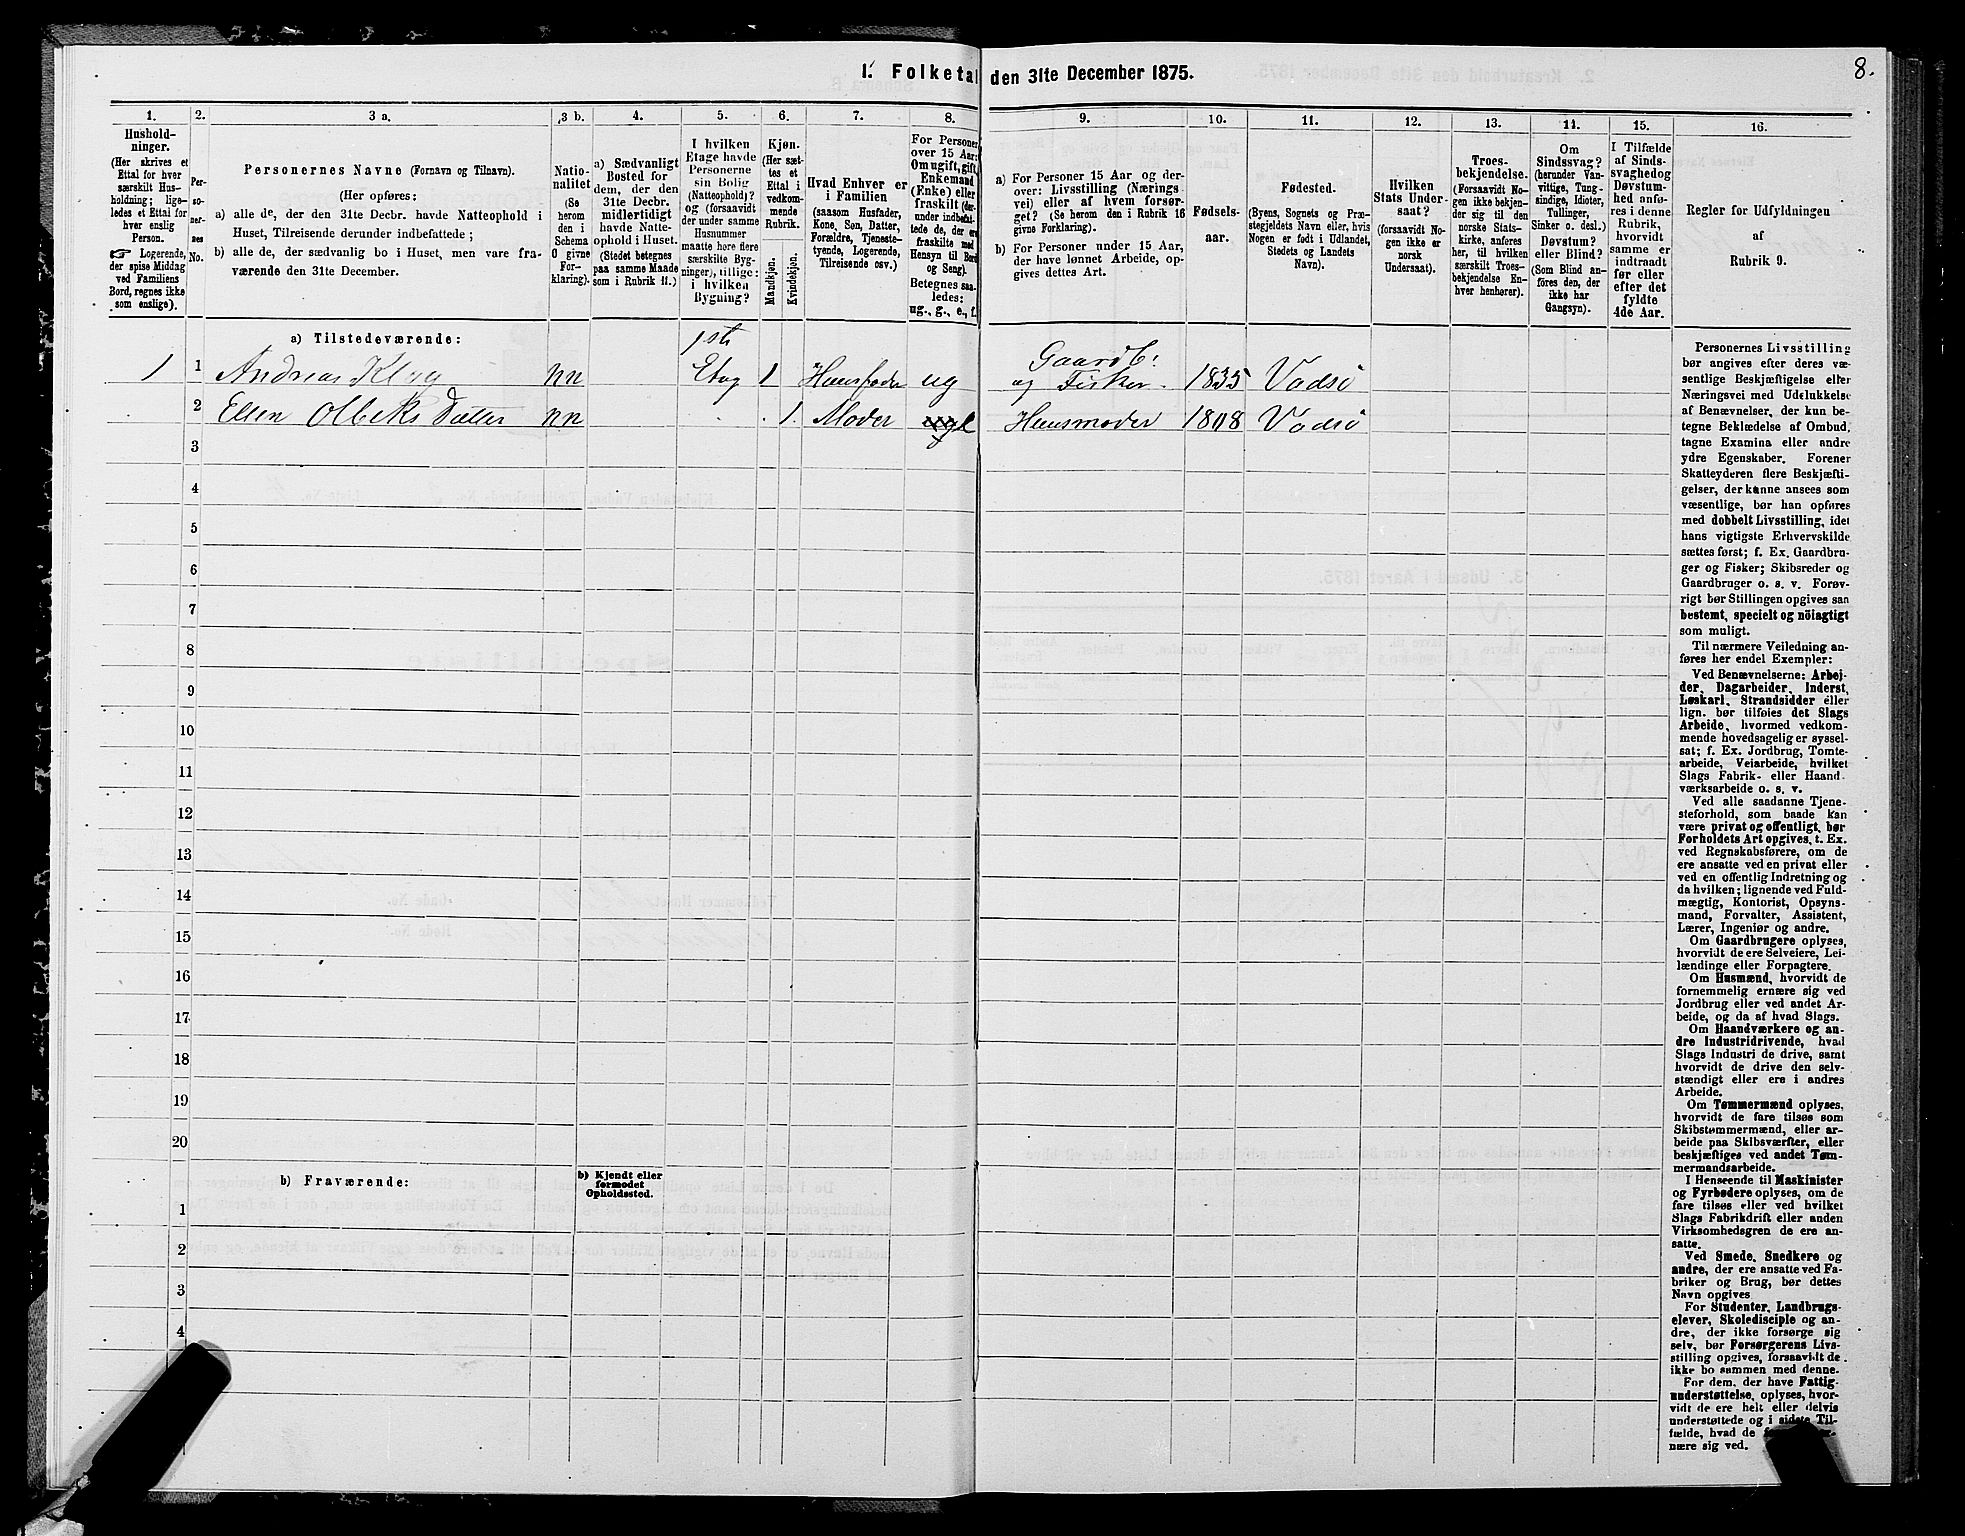 8.
1. Folketal den 31te December 1875.
1.
Hushold-
ninger.
(Her skrives et
Ettal for hver
særskilt Hus-
holdning; lige-
ledes et Ettal for
hver enslig
Person.
☞ Logerende,
der spise Middag
ved Familiens
Bord, regnes ikke
som enslige).
2.
Per-
so-
ner-
nes
No.
3 a.
Personernes Navne (Fornavn og Tilnavn).
(Her opføres:
a) alle de, der den 31te Decbr. havde Natteophold i
Huset, Tilreisende derunder indbefattede;
b) alle de, der sædvanlig bo i Huset, men vare fra-
værende den 31te December.
3 b.
Natio-
nalitet
(Se
herom
den i
Schema
O givne
For-
klaring).
4.
a) Sædvanligt
Bosted for
dem, der den
31te Decbr.
midlertidigt
havde Natte-
ophold i Huset.
(Stedet betegnes
paa samme Maade
som i Rubrik 11.)
5.
I hvilken
Etage havde
Personerne
sin Bolig
(Natteophold)?
og (forsaavidt
der under samme
Husnummer
maatte høre flere
særskilte Byg-
ninger), tillige:
i hvilken
Bygning?
6.
Kjøn.
(Her sæt-
tes et
Ettal i
vedkom-
mende
Rubrik.
Mandkjøn.
Kvindekjøn.
7.
Hvad Enhver er
i Familien
(saasom Husfader,
Kone, Søn, Datter,
Forældre, Tjeneste-
tyende, Logerende,
Tilreisende osv.)
8.
For Personer
over 15 Aar:
Om ugift, gift,
Enkemand
(Enke) eller
fraskilt (der-
under indbefat-
tede de, der ere
fraskilte med
Hensyn til Bord
og Seng).
Betegnes saa-
ledes:
ug., g., e., f.
9.
a) For Personer 15 Aar og der-
over: Livsstilling (Nærings
vei) eller af hvem forsør-
get? (Se herom den i Rubrik 16
givne Forklaring).
b) For Personer under 15 Aar,
der have lønnet Arbeide, op-
gives dettes Art.
10.
Fødsels-
aar.
11.
Fødested.
(Byens, Sognets og Præ-
stegjeldets Navn, eller hvis
Nogen er født i Udlandet,
Stedets og Landets
Navn).
12.
Hvilken
Stats Under-
saat?
(forsaavidt No-
gen ikke er
norsk
Undersaat).
13.
Troes-
bekjendelse.
(Forsaavidt No-
gen ikke bekjen-
der sig til den
norske Stats-
kirke, anføres
her, til hvilken
særskilt Troes-
bekjendelse En-
hver henhører).
14.
Om
Sindssvag?
(herunder Van-
vittige, Tung-
sindige, Idioter,
Tullinger,
Sinker o. desl.)
Døvstum?
eller Blind?
(Som Blind an-
føres den, der
ikke har
Gangsyn).
15.
I Tilfælde
af Sinds-
svaghed og
Døvstum-
hed anfø-
res i denne
Rubrik,
hvorvidt
samme er
indtraadt
før eller
efter det
fyldte
4de Aar.
16.
Regler for Udfyldningen
af
Rubrik 9.
a) Tilstedeværende:
1 1 Andreas Klyg nn 1ste Etag 1 Huusfader ug Gaardb: og Fisker. 1835 Vadsö
2 Ellen Olbeks Datter nn 1. Moder e Huusmoder 1808 Vadsö
3
4
5
6
7
8
9
10
11
12
13
14
15
16
17
18
19
20
b) Fraværende:
b) Kjendt eller
formodet
Opholdssted.
1
2
3
4
Personernes Livsstilling
bør angives efter deres væ-
sentlige Beskjæftigelse eller
Næringsvei med Udelukkelse
af Benævnelser, der kun be-
tegne Beklædelse af Ombud,
tagne Examina eller andre
ydre Egenskaber. Forener
Skatteyderen flere Beskjæfti-
gelser, der kanne ansees som
væsentlige, bør han opføres
med dobbelt Livsstilling, idet
hans vigtigste Erhvervskilde
sættes først; f. Ex. Gaardbru-
ger og Fisker; Skibsreder og
Gaardbruger o. s. v. Forøv-
rigt bør Stillingen opgives saa
bestemt, specielt og nöiagtigt
som muligt.
Til nærmere Veiledning an-
føres her endel Exempler:
Ved Benævnelserne: Arbej-
der, Dagarbeider, Inderst,
Løskarl, Strandsidder eller
lign. bør tilføies det Slags
Arbeide, hvormed vedkom-
mende hovedsagelig er syssel-
sat; f. Ex. Jordbrug, Tomte-
arbeide, Veiarbeide, hvilket
Slags Fabrik- eller Haand-
værksarbeide o. s. v.
Ved alle saadanne Tjene-
steforhold, som baade kan
være privat og offentligt, bør
Forholdets Art opgives, t. Ex.
ved Regnskabsførere, om de
ere ansatte ved en privat eller
ved en offentlig Indretning og
da hvilken; lignende ved Fuld-
mægtig, Kontorist, Opsyns-
mand, Forvalter, Assistent,
Lærer, Ingeniør og andre.
Om Gaardbrugere oplyses,
hvorvidt de ere Selveiere, Lei-
lændinge eller Forpagtere.
Om Husmænd, hvorvidt de
fornemmelig ernære sig ved
Jordbrug eller ved andet Ar-
beide, og da af hvad Slags.
Om Haandværkere og an-
dre Industridrivende, hvad
Slags Industri de drive, samt
hvorvidt de drive den selv-
stændigt eller ere i andres
Arbeide.
Om Tømmermænd oplyses,
hvorvidt de fare tilsøs som
Skibstømmermænd, eller ar-
beide paa Skibsværfter, eller
beskjæftiges ved andet Tøm-
mermandsarbeide.
I Henseende til Maskinister
og Fyrbødere oplyses, om de
fare tilsøs eller ved hvilket
Slags Fabrikdrift eller anden
Virksomhedsgren de ere an-
satte.
Ved Smede, Snedkere og
andre, der ere ansatte ved Fa-
briker og Brug, bør dettes
Navn opgives
For Studenter, Landbrugs-
elever, Skoledisciple og an-
dre, der ikke forsørge sig
selv, bør Forsørgerens Livs-
stilling opgives, forsaavidt de
ikke bo sammen med denne.
For dem, der have Fattig-
understøttelse, oplyses, hvor-
vidt de ere helt eller delvis
understøttede og i sidste Til-
fælde, hvad de
nære sig ved.